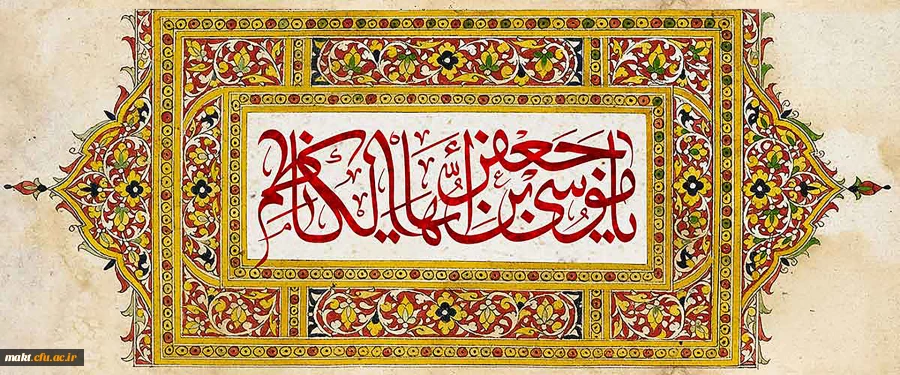 یا موسی بن جعفر أیّها الکاظم
makt.cfu.ac.ir